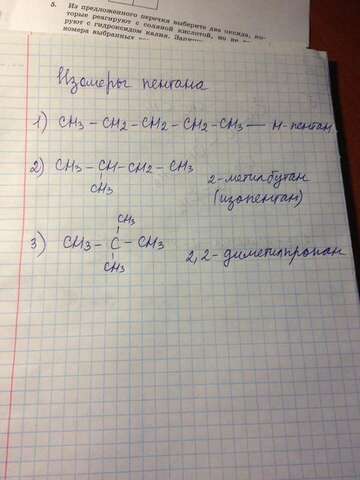 5. Из предложенного перечня выберите два оксида, ко-
торые реагируют с соляной кислотой, но не
руют с гидроксидом калия.
номера выбранных
Изомеры пентана
1) CH3 - CH2 - CH2 - CH2 - CH3 — н-пентан
2) CH3 - CH - CH2 - CH3
CH3
2-метилбутан
(изопентан)
CH3
3) CH3 - C - CH3
CH3
2,2-диметилпропан